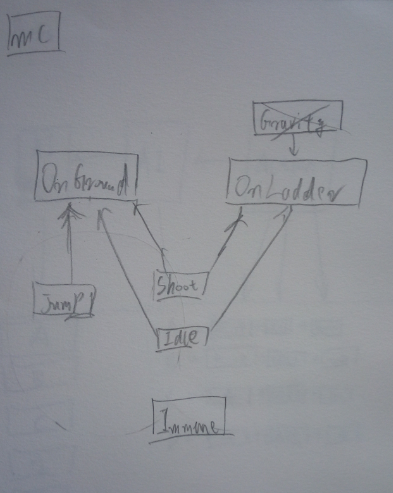 MC
Gravity
OnGround
OnLadder
Shoot
Jump
Idle
Immune